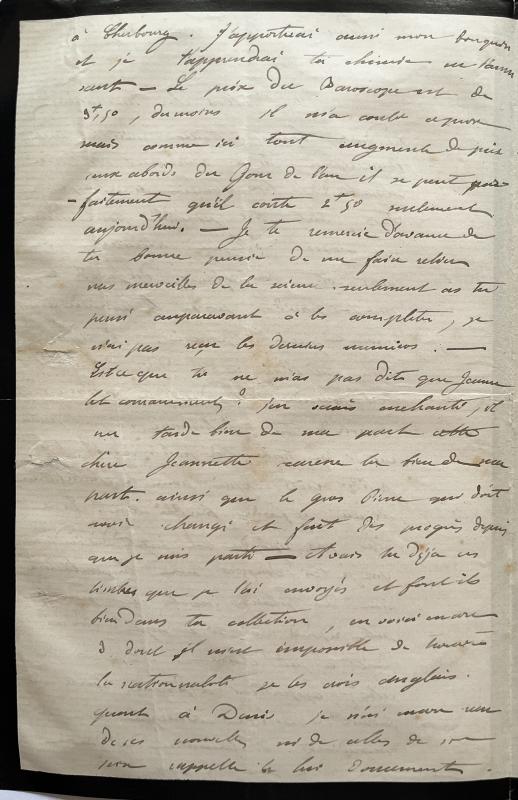 à Cherbourg. J'apporterai aussi mon bouquin
et je t'apprendrai ta chimie en t'amu
sant — Le prix du Baroscope est de
3f,50, du moins il m'a coûté ce prix
mais comme ici tout augmente de prix
aux abords du Jour de l'an il se peut par
-faitement qu'il coûte 2f50 seulement
aujourd'hui. — Je te remercie d'avance de
ta bonne pensée de me faire relier
mes merveilles de la science seulement as tu
pensé auparavant à les compléter, je
n'ai pas reçu les derniers numéros. —
Est ce que tu ne m'as pas dit que Jeanne
? j'en serais enchanté, il
me tarde bien de ma part cette
chère Jeannette caresse la bien de ma
part. ainsi que le gros Pierre qui doit
avoir changé et fait des progrès depuis
que je suis parti — Avais tu déjà ces
timbres que je t'ai envoyés et font ils
bien dans ta collection, en voici encore
3 dont il m'est impossible de trouver
la nationalité je les crois anglais.
quant à Denis je n'ai encore eu
de ses nouvelles ni de celles de son
rappelle la lui doucement.